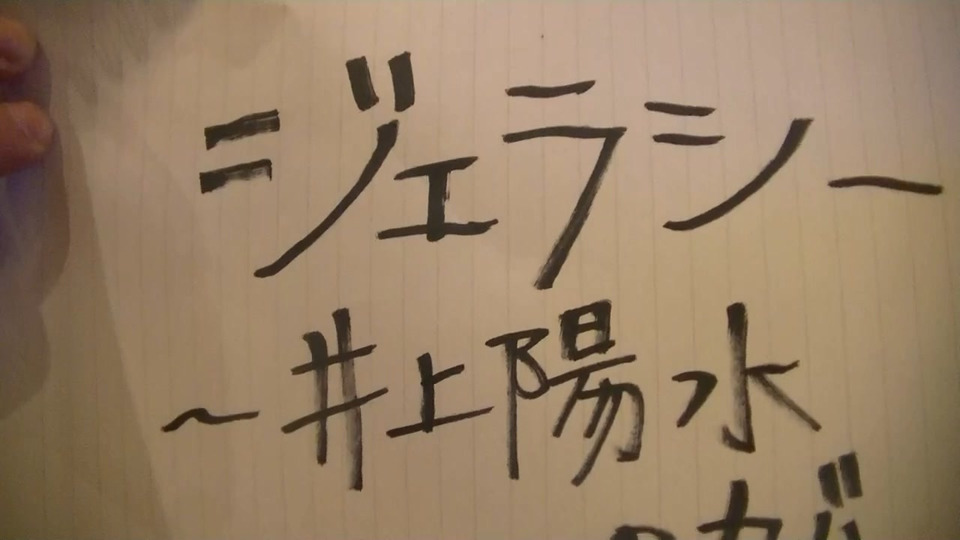 ジェラシー
～井上陽水